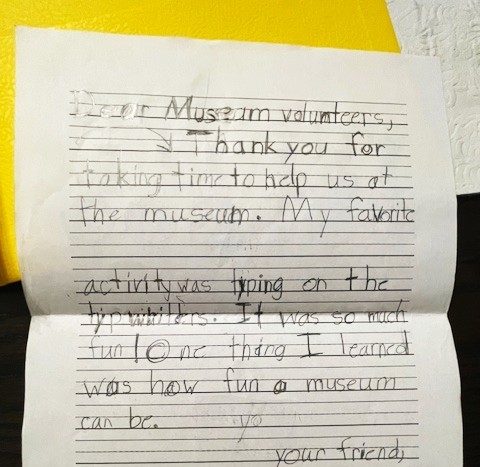 Dear Museam volunteers,
Thank you for
taking time to help us at
the museum. My favorite
activity was typing on the
typwriters. It was so much
fun! One thing I learned
was how fun a museum
can be. yo
your friend,